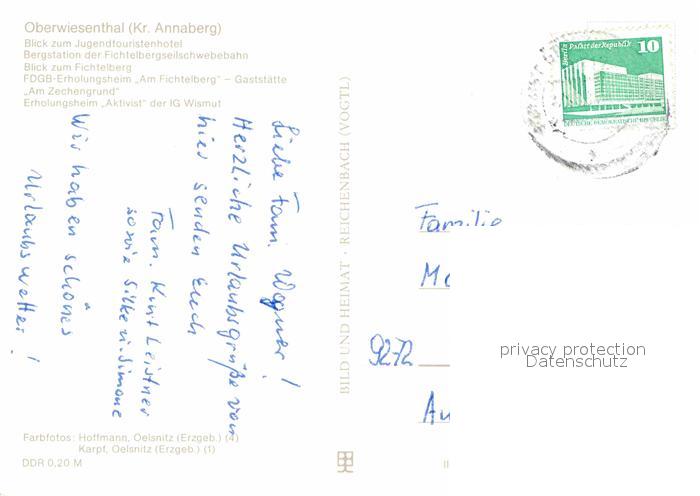 Oberwiesenthal (Kr. Annaberg)
Blick zum Jugendtouristenhotel
Bergstation der Fichtelbergseilschwebebahn
Blick zum Fichtelberg
FDGB-Erholungsheim „Am Fichtelberg" – Gaststätte
„Am Zechengrund"
Erholungsheim „Aktivist" der IG Wismut
Liebe Fam. Wagner!
Herzliche Urlaubsgrüße von
hier senden Euch
Fam. Kurt Leistner
sowie Silke u. Simone
Wir haben schönes
Urlaubswetter!
Farbfotos: Hoffmann, Oelsnitz (Erzgeb.) (4)
Karpf, Oelsnitz (Erzgeb.) (1)
DDR 0,20 M
BILD UND HEIMAT · REICHENBACH (VOGTL)
Berlin Palast der Republik 10
DEUTSCHE DEMOKRATISCHE REPUBLIK
Familie
9272
privacy protection
Datenschutz